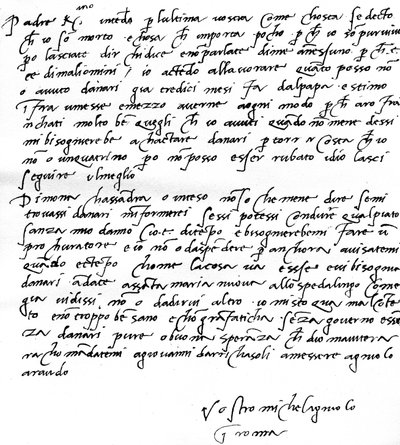 Padre K(mo) intendo p lultima vostra come chosta se decto
ch io so morto e chosa ch importa pocho p ch io so pur vivo
po lasciate dir chi dice e nō parlate di me a nessuno p ch e
ce di mali omini / io actēdo allavorare quāto posso nō
o avuto danari gia tredici mesi fa dal papa e stimo
ifra ū mese e mezzo averne a ogni modo p ch aro
molto bē quegli ch io avuti quādo nō mene dessi
mi bisogniērebe achactare danari p tornar costa ch io
nō o un quatrino po no posso esser rubato idio lasci
seguire il meglio
Di mona chassādra o inteso nō so che mene dire se mi
trovassi danari minformerei se ssi potessi condure qua il piato
sanza mio danno cioe di tēpo e bisogniērebemi fare ū
prochuratore e io nō o da spēdere p anchora avisatemi
quādo e ctēpo chome la cosa va e sse e vi bisognia
danari ādate assāta maria nuova allo spedalingo come
gia vi dissi nō o da dirvi altro io mi sto qua mal cōtē
to e nō troppo bē sano e chō grā faticha sēza governo e sē
za danari pure o buona sperāza ch dio maiutera
rachomādatemi agiovanni da richasoli a messere agniolo
araldo
Vostro michelagniolo
ī roma